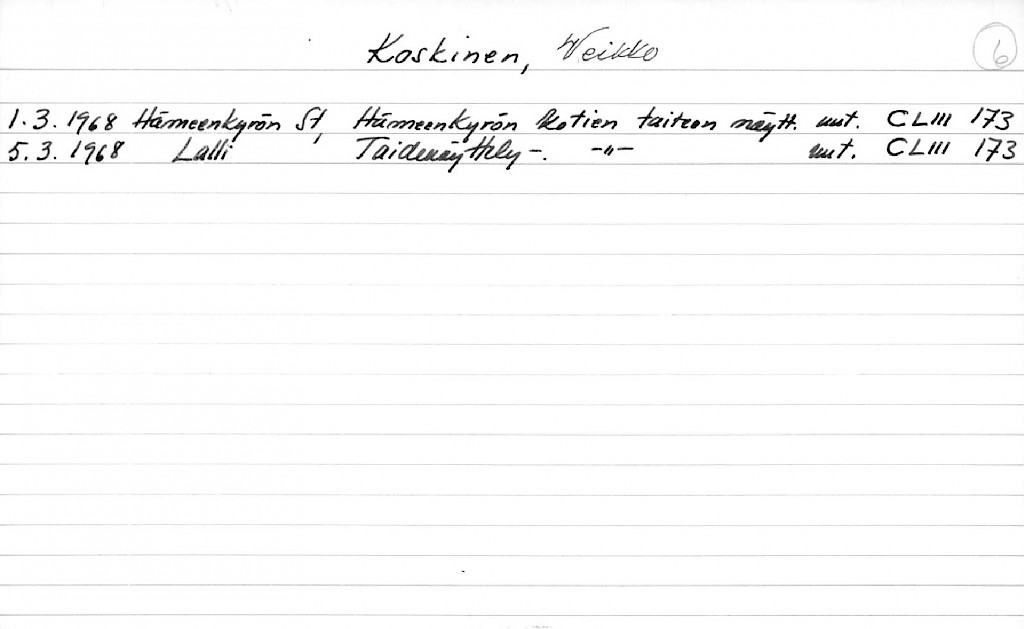 Koskinen, Veikko 6
1.3.1968 Hämeenkyrön St, Hämeenkyrön kotien taiteen näytt. uut. CLIII 173
5.3.1968 Lalli Taidenäyttely -. -"- uut. CLIII 173